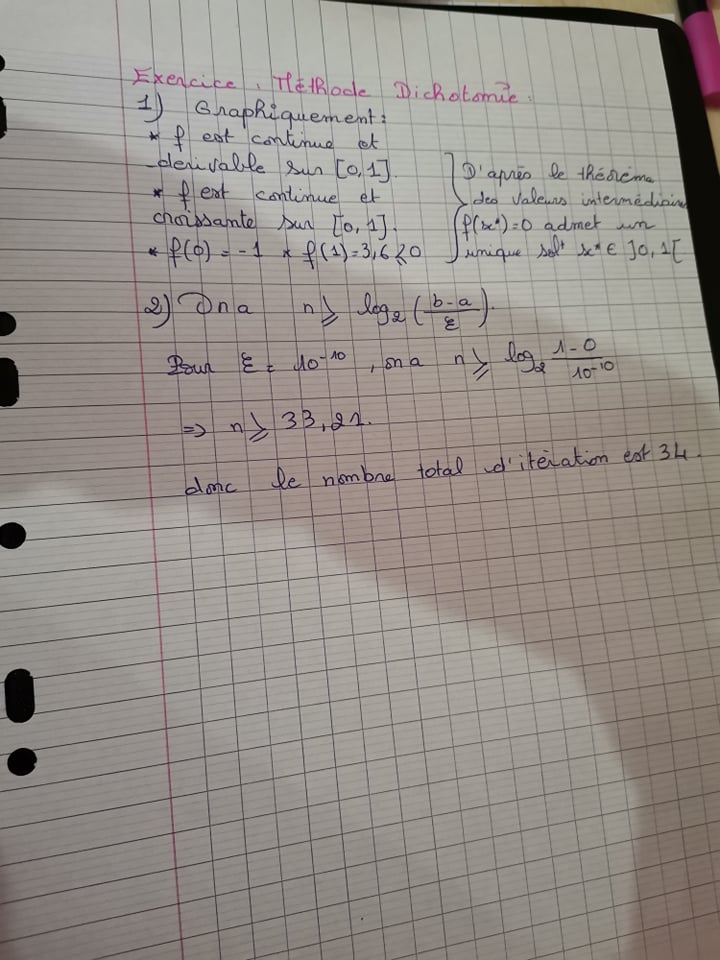 Exercice. Méthode Dichotomie.
1) Graphiquement:
* f est continue et
dérivable sur [0,1].
* f est continue et
croissante sur [0,1].
* f(0) = -1 * f(1)=3,6 < 0
D'après le théorème
des valeurs intermédiaires
f(x*)=0 admet un
unique sol° x* ∈ ]0,1[
2) On a n ≥ log₂ (b-a/ε).
Pour ε = 10⁻¹⁰, on a n ≥ log₂ 1-0/10⁻¹⁰
⇒ n ≥ 33,21.
donc le nombre total d'itération est 34.